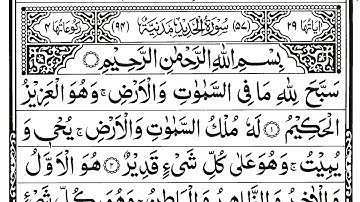 اٰیَاتُهَا ٢٩ (٥٧) سُوْرَةُ الْحَدِیْدِ مَدَنِیَّةٌ (٩٤) رُكُوْعَاتُهَا ٤
بِسْمِ اللّٰهِ الرَّحْمٰنِ الرَّحِیْمِ
سَبَّحَ لِلّٰهِ مَا فِی السَّمٰوٰتِ وَالْاَرْضِ ۚ وَهُوَ الْعَزِیْزُ
الْحَكِیْمُ ۝۱ لَهٗ مُلْكُ السَّمٰوٰتِ وَالْاَرْضِ ۚ یُحْیٖ وَ
یُمِیْتُ ۚ وَهُوَ عَلٰی كُلِّ شَیْءٍ قَدِیْرٌ ۝۲ هُوَ الْاَوَّلُ
وَالْاٰخِرُ وَالظَّاهِرُ وَالْبَاطِنُ ۚ وَهُوَ بِكُلِّ شَیْءٍ